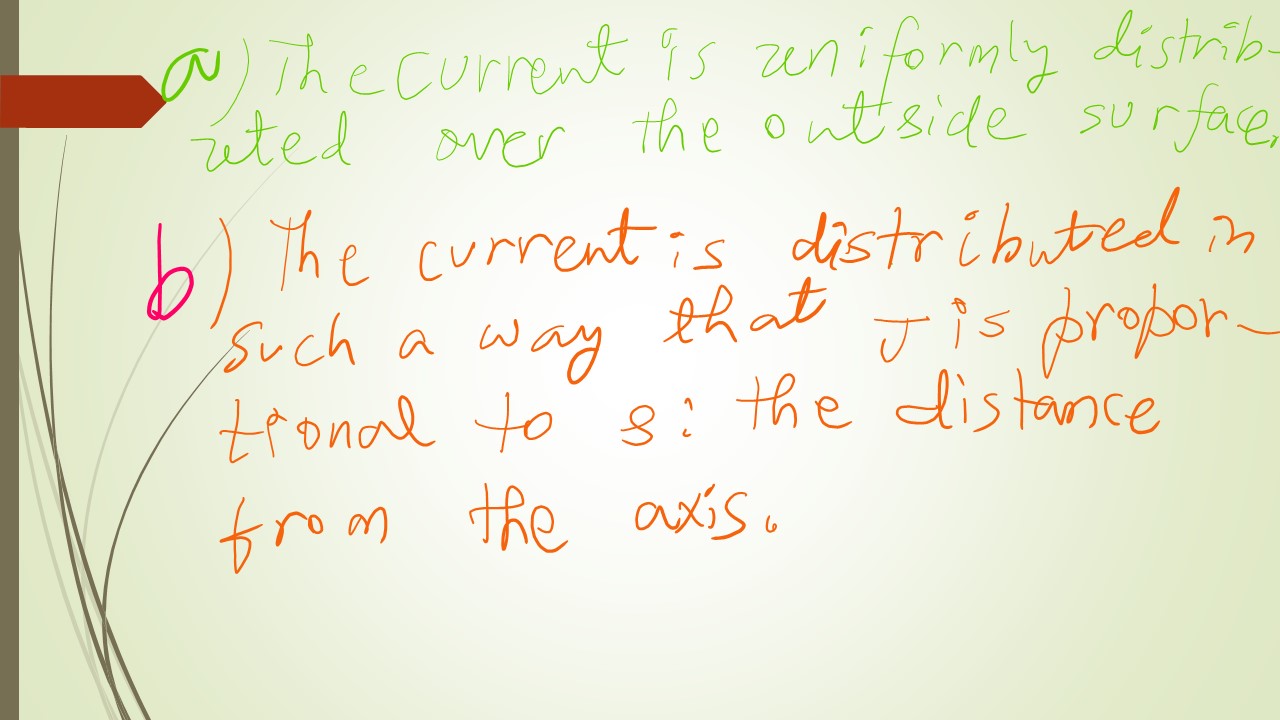 a) The current is uniformly distrib-
uted over the outside surface.
b) The current is distributed in
such a way that J is propor-
tional to s: the distance
from the axis.